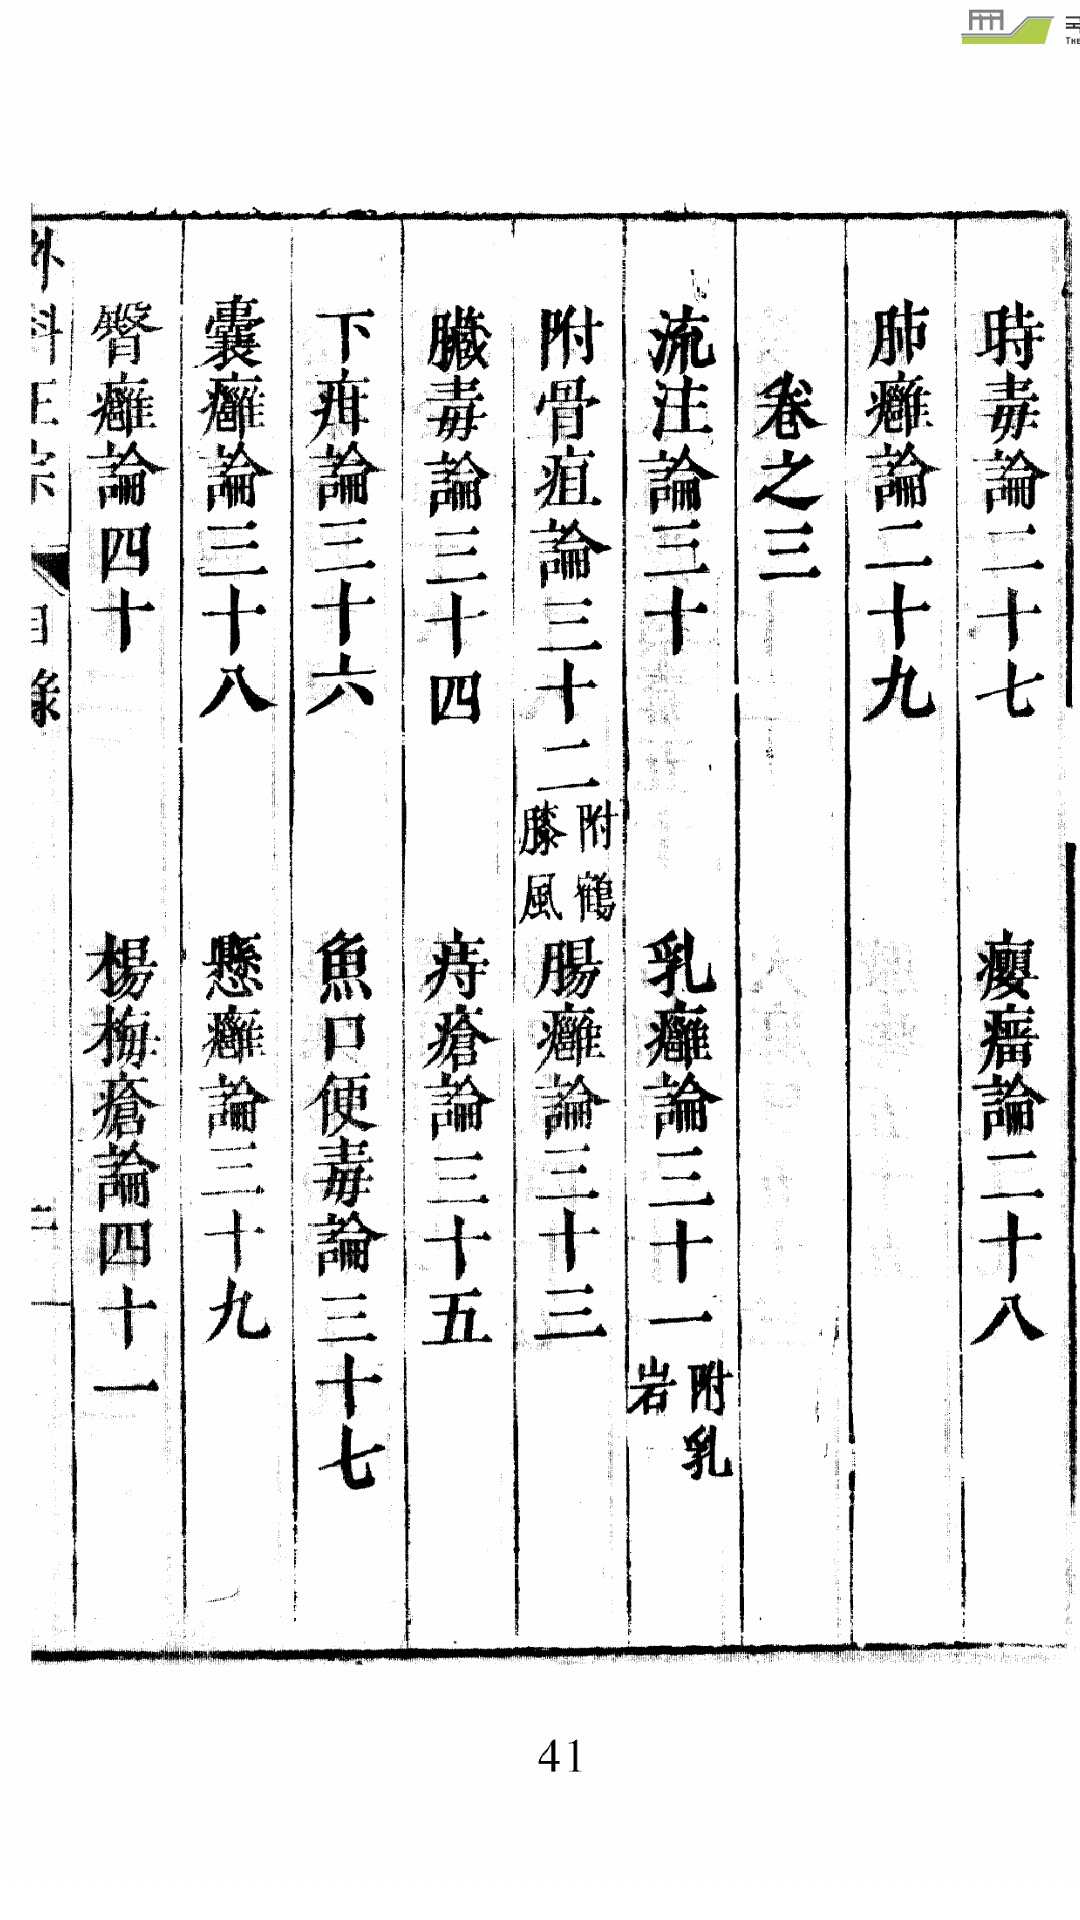 時毒論二十七　癭瘤論二十八
肺癰論二十九
卷之三
流注論三十　乳癰論三十一附乳岩
附骨疽論三十二附鶴膝風　腸癰論三十三
臟毒論三十四　痔瘡論三十五
下疳論三十六　魚口便毒論三十七
囊癰論三十八　懸癰論三十九
臀癰論四十　楊梅瘡論四十一
外科正宗　目錄
41